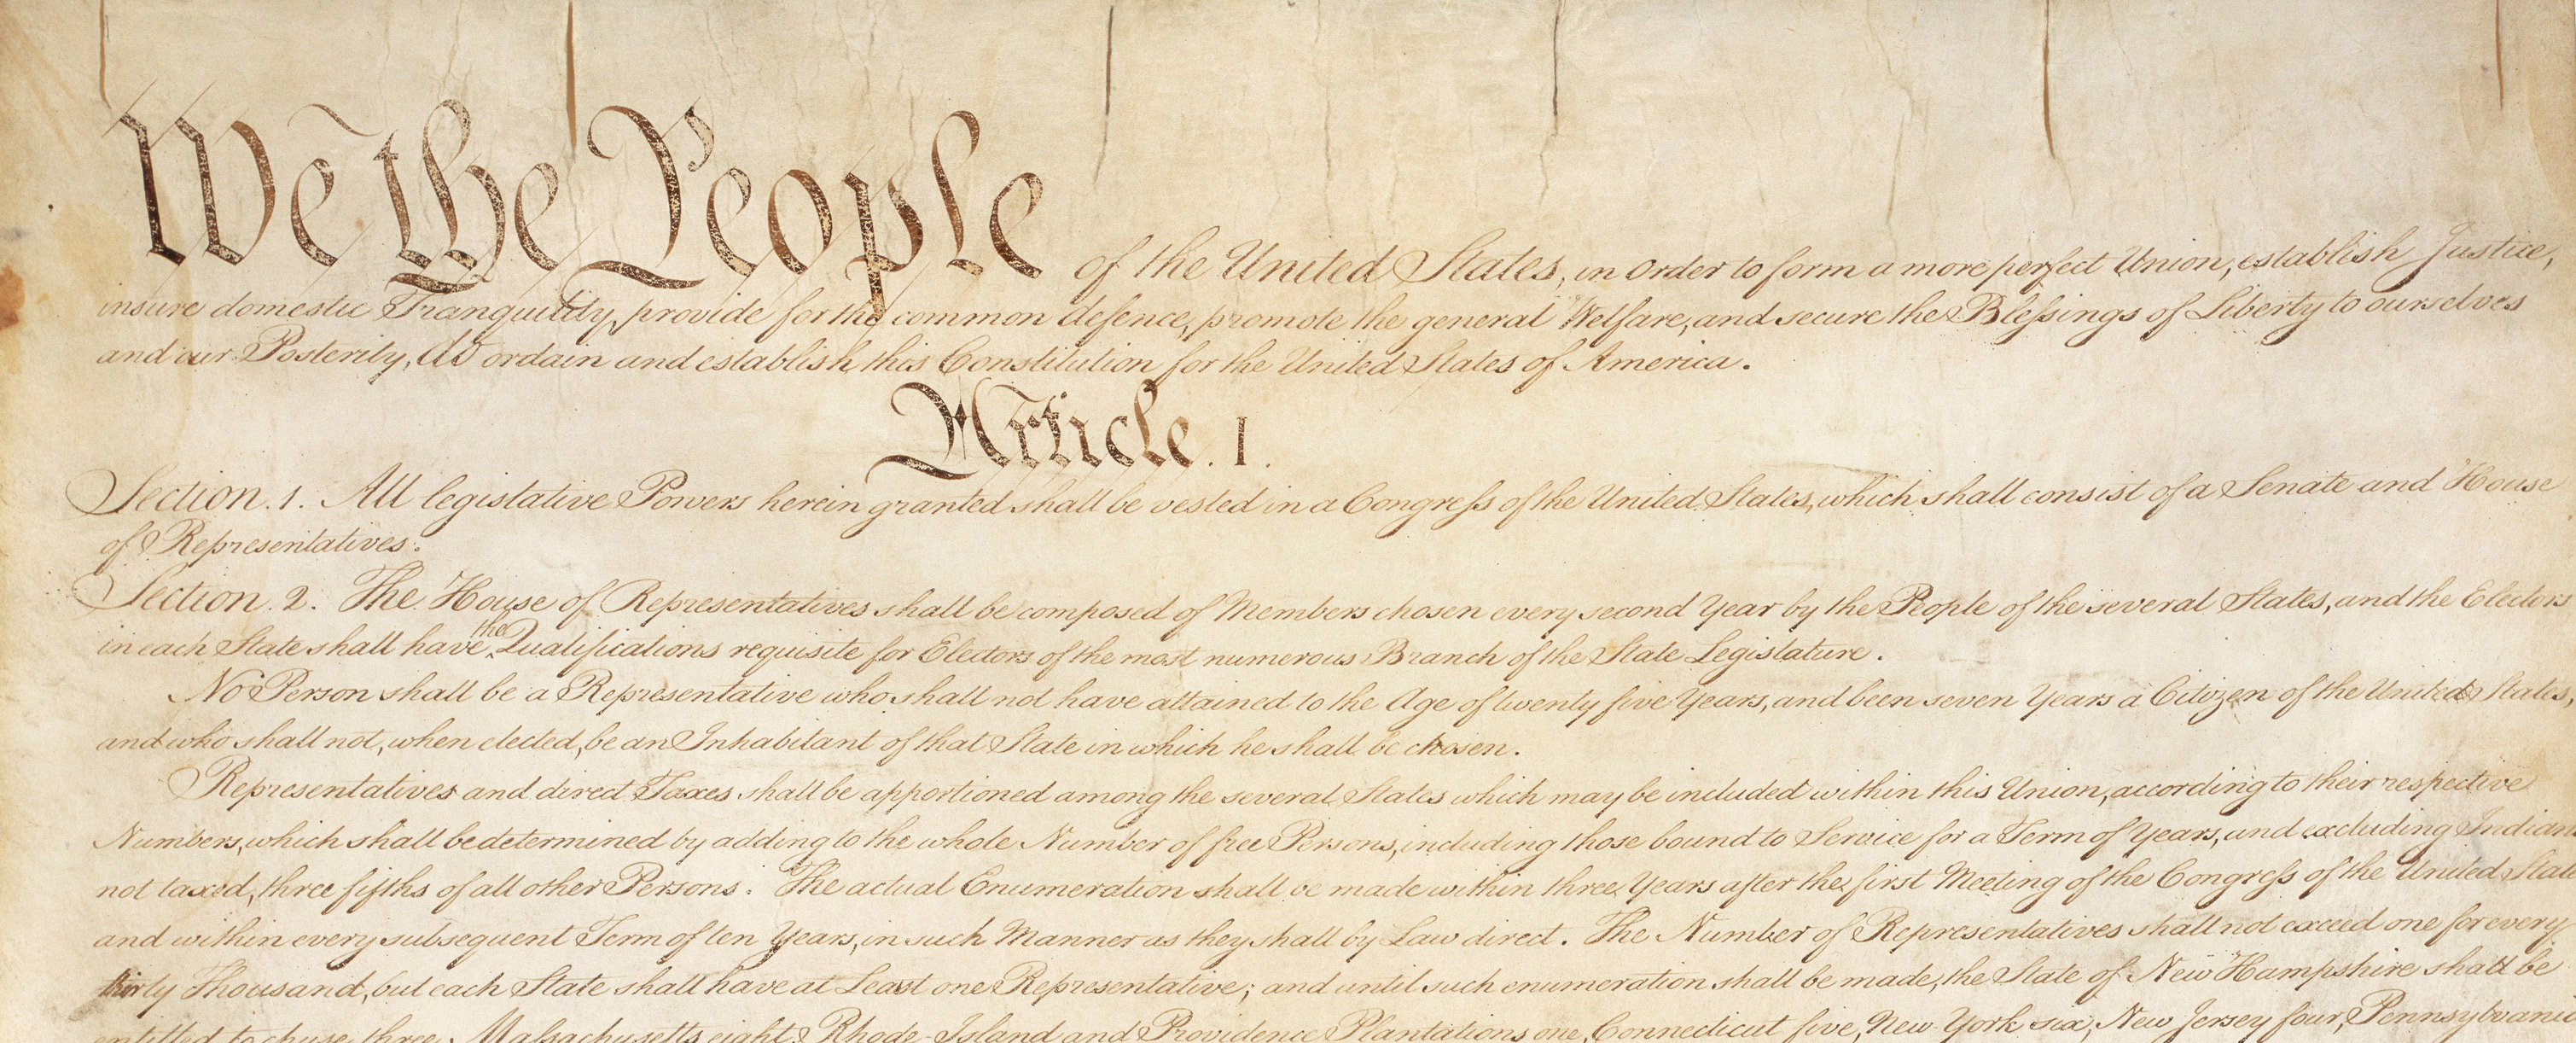 We the People of the United States, in Order to form a more perfect Union, establish Justice,
insure domestic Tranquility, provide for the common defence, promote the general Welfare, and secure the Blessings of Liberty to ourselves
and our Posterity, do ordain and establish this Constitution for the United States of America.
Article. I.
Section. 1. All legislative Powers herein granted shall be vested in a Congress of the United States, which shall consist of a Senate and House
of Representatives.
Section. 2. The House of Representatives shall be composed of Members chosen every second Year by the People of the several States, and the Electors
in each State shall have the Qualifications requisite for Electors of the most numerous Branch of the State Legislature.
No Person shall be a Representative who shall not have attained to the Age of twenty five Years, and been seven Years a Citizen of the United States,
and who shall not, when elected, be an Inhabitant of that State in which he shall be chosen.
Representatives and direct Taxes shall be apportioned among the several States which may be included within this Union, according to their respective
Numbers, which shall be determined by adding to the whole Number of free Persons, including those bound to Service for a Term of Years, and excluding Indians
not taxed, three fifths of all other Persons. The actual Enumeration shall be made within three Years after the first Meeting of the Congress of the United States
and within every subsequent Term of ten Years, in such Manner as they shall by Law direct. The Number of Representatives shall not exceed one for every
thirty Thousand, but each State shall have at Least one Representative; and until such enumeration shall be made, the State of New Hampshire shall be
entitled to chuse three, Massachusetts eight, Rhode-Island and Providence Plantations one, Connecticut five, New-York six, New Jersey four, Pennsylvania